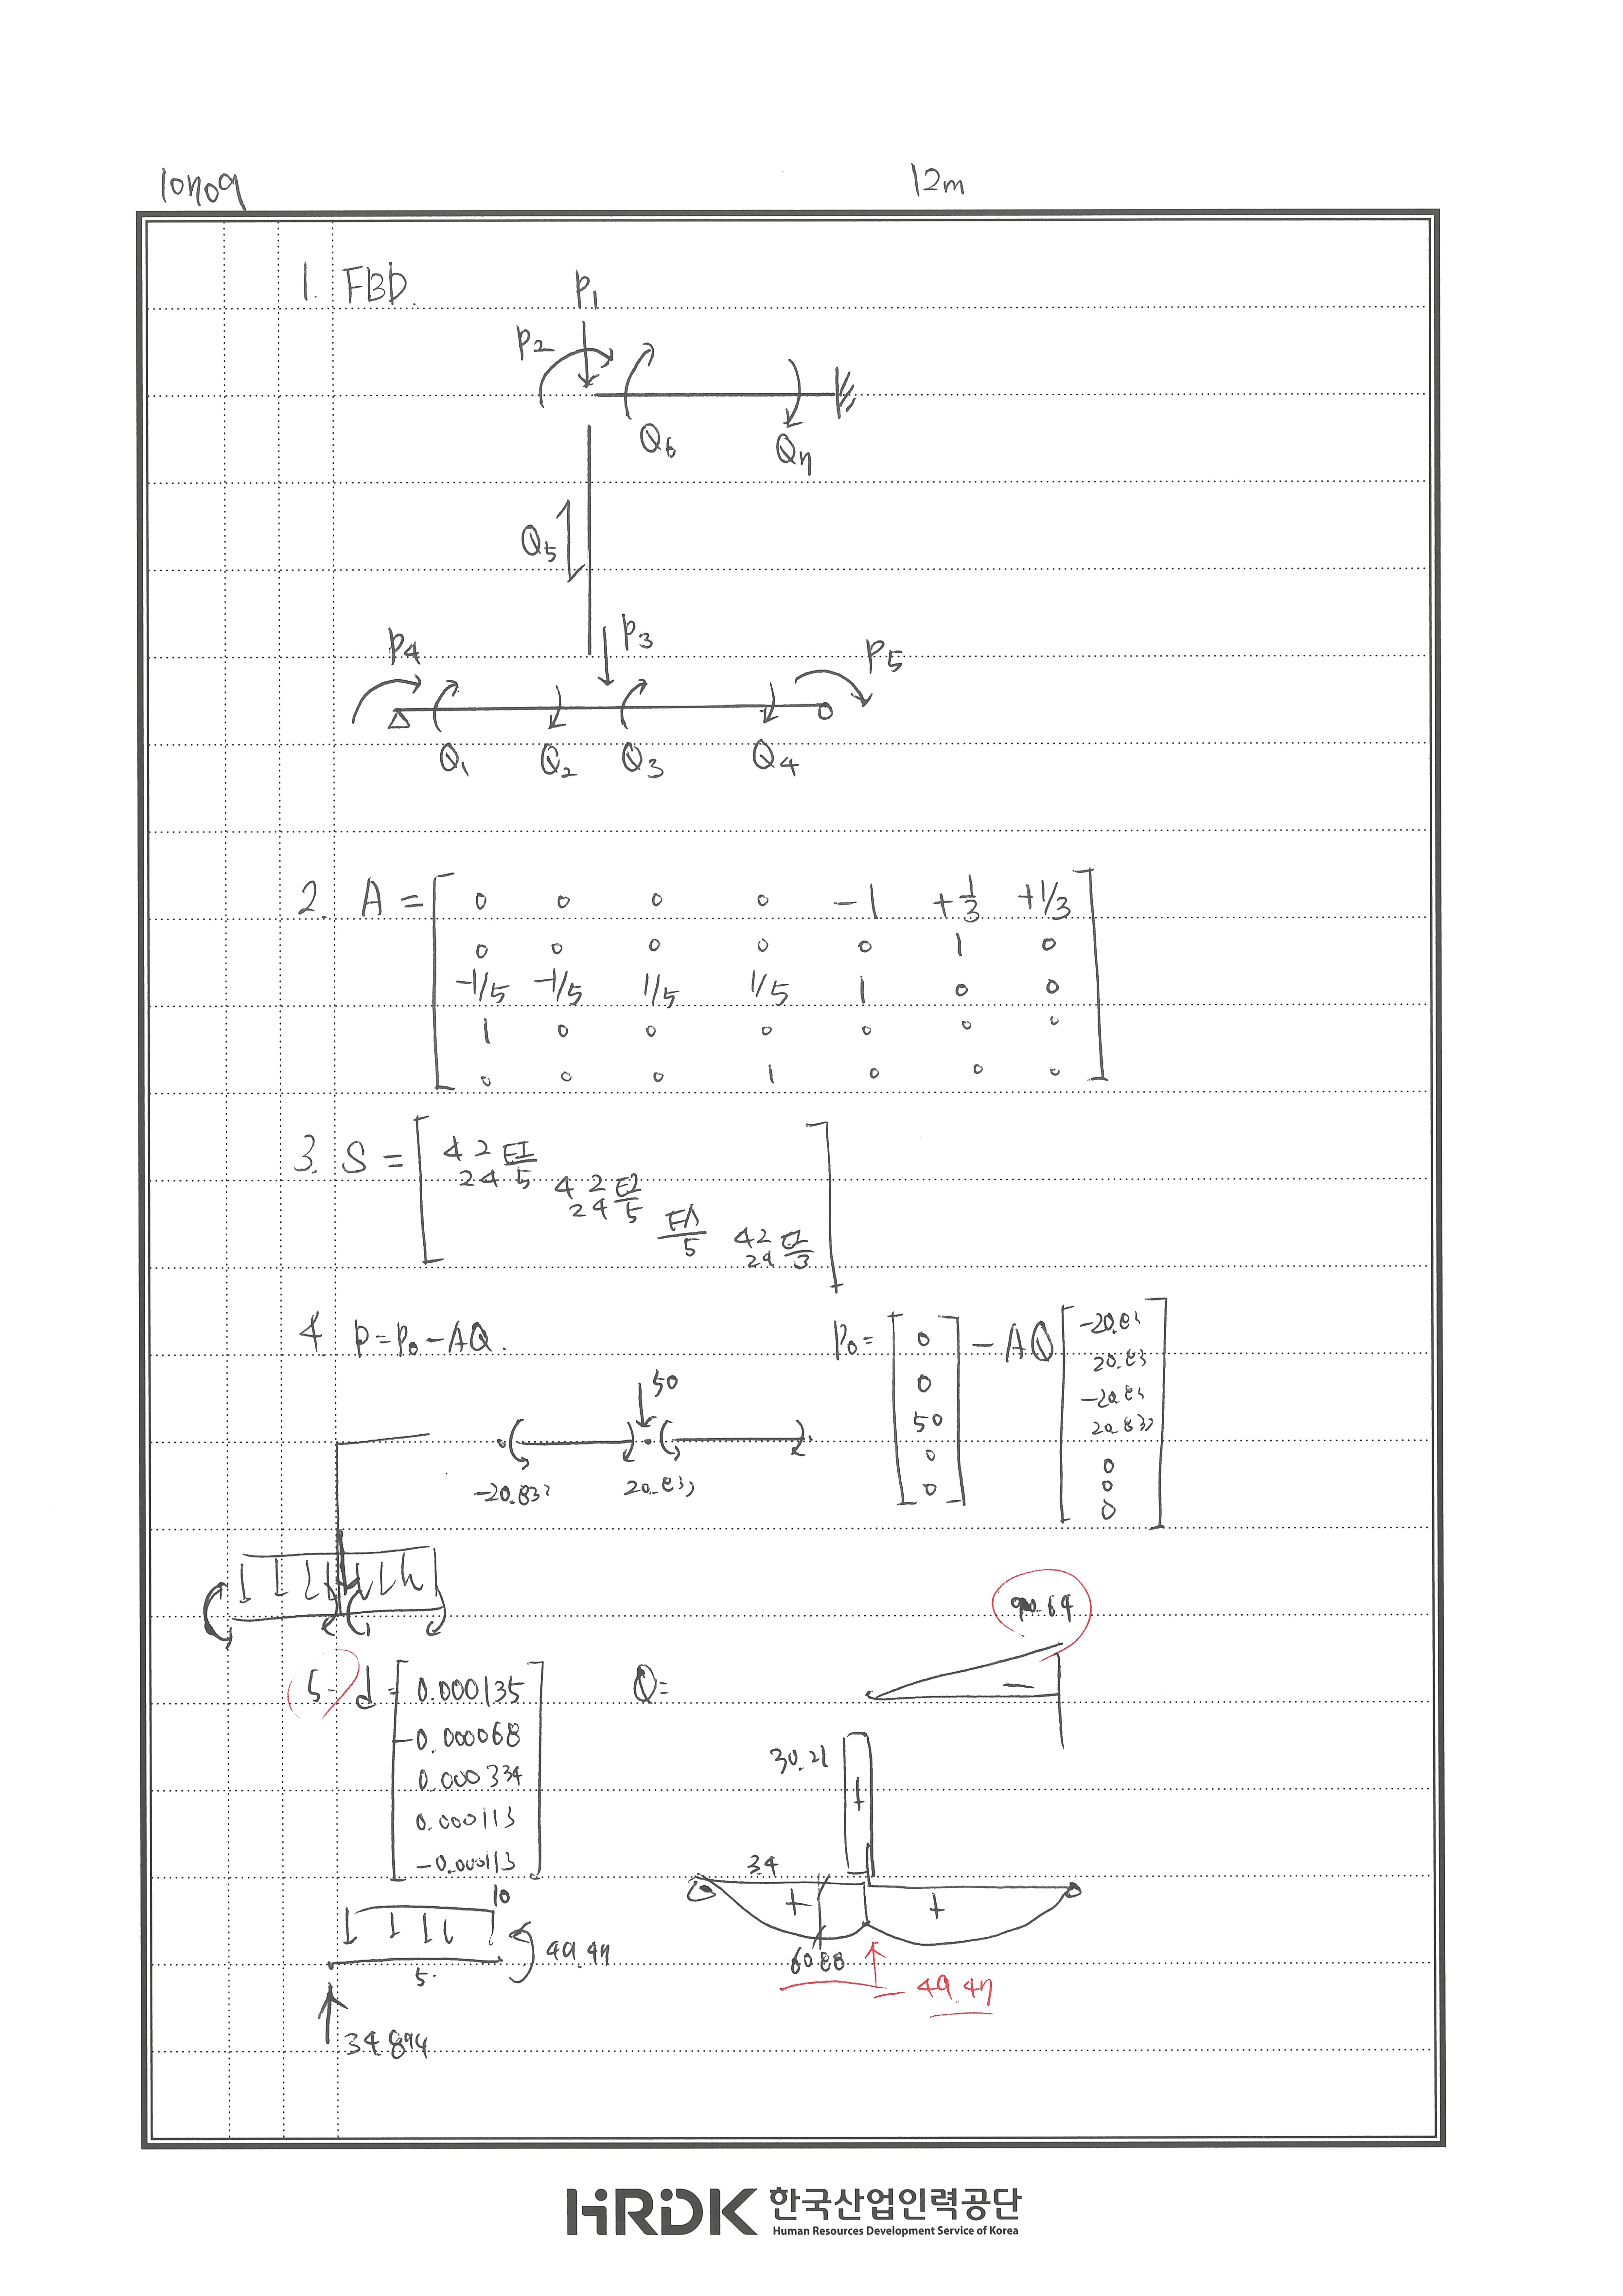 10709
12m
1. FBD.
P1
P2
Q6
Q7
Q5
P3
P4
P5
Q1 Q2 Q3 Q4
2. A = [ 0 0 0 0 -1 +1/3 +1/3
0 0 0 0 0 1 0
-1/5 -1/5 1/5 1/5 1 0 0
1 0 0 0 0 0 0
0 0 0 1 0 0 0 ]
3. S = [ 4 2 EI/5
2 4
4 2 EI/5
2 4
EA/5
4 2 EI/3
2 4 ]
4. P = P0 - AQ.
P0 = [ 0 0 50 0 0 ] - AQ [ -20.83 20.83 -20.83 20.833 0 0 0 ]
50
-20.833
20.833
90.64
5. d = [ 0.000135
-0.000068
0.000334
0.000113
-0.000113 ]
Q=
30.21
+
3.4
+ +
60.88
49.47
10
5.
49.47
34.894
HRDK 한국산업인력공단
Human Resources Development Service of Korea